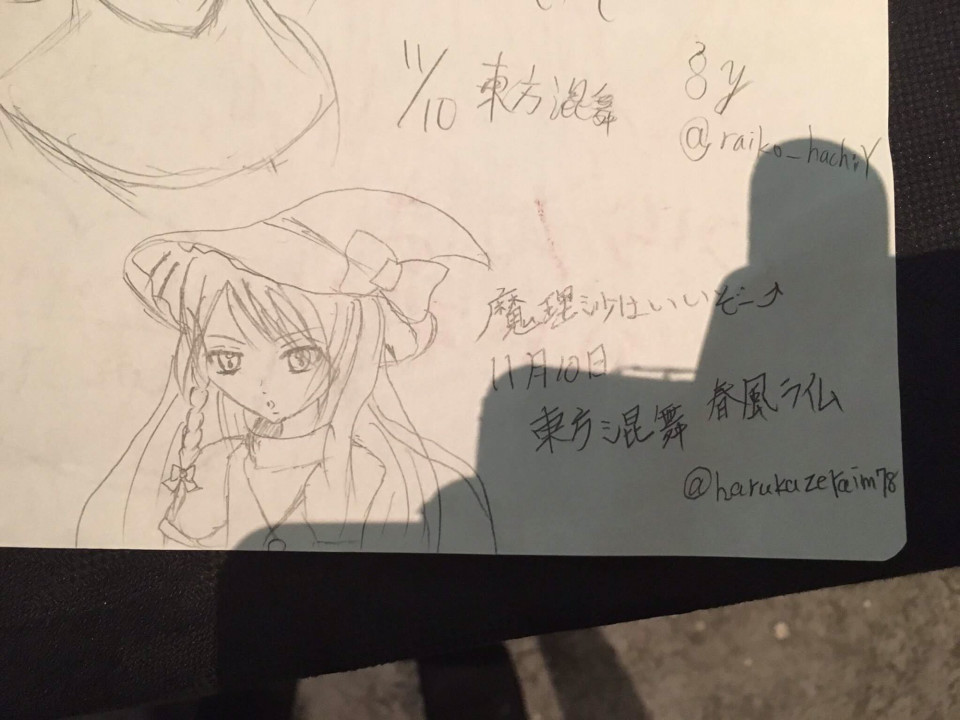 11/10 東方混舞
8y
@raiko_hachiY
魔理沙はいいぞー↗
11月10日
東方混舞 春風ライム
@harukazeraim78